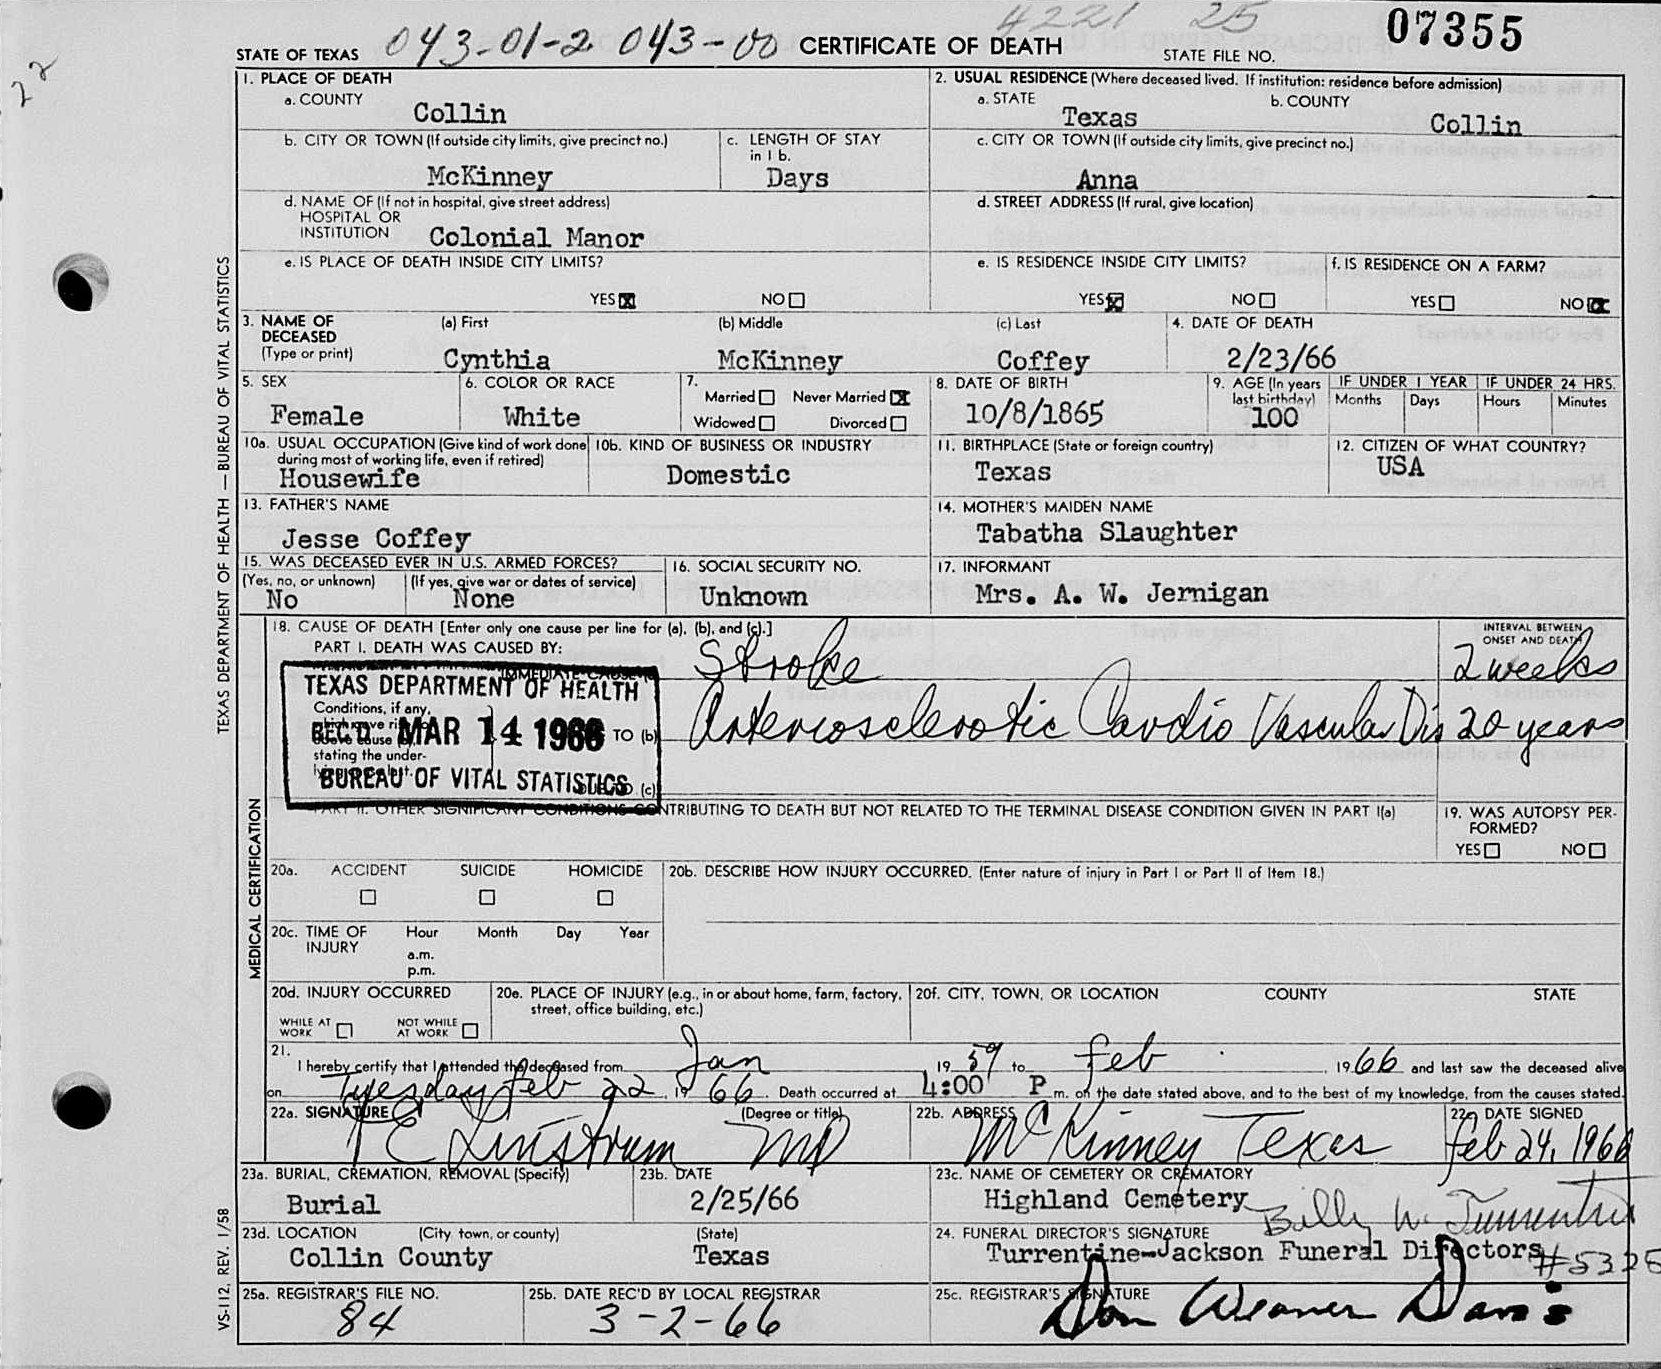 22
STATE OF TEXAS 043-01-2 043-00 CERTIFICATE OF DEATH 4221 25 STATE FILE NO. 07355
1. PLACE OF DEATH
a. COUNTY
Collin
2. USUAL RESIDENCE (Where deceased lived. If institution: residence before admission)
a. STATE b. COUNTY
Texas Collin
b. CITY OR TOWN (If outside city limits, give precinct no.)
McKinney
c. LENGTH OF STAY
in 1 b.
Days
c. CITY OR TOWN (If outside city limits, give precinct no.)
Anna
d. NAME OF (If not in hospital, give street address)
HOSPITAL OR
INSTITUTION Colonial Manor
d. STREET ADDRESS (If rural, give location)
e. IS PLACE OF DEATH INSIDE CITY LIMITS?
YES NO
e. IS RESIDENCE INSIDE CITY LIMITS?
YES NO
f. IS RESIDENCE ON A FARM?
YES NO
3. NAME OF
DECEASED
(Type or print)
(a) First (b) Middle (c) Last
Cynthia McKinney Coffey
4. DATE OF DEATH
2/23/66
5. SEX
Female
6. COLOR OR RACE
White
7.
Married Never Married
Widowed Divorced
8. DATE OF BIRTH
10/8/1865
9. AGE (In years
last birthday)
100
IF UNDER 1 YEAR
Months Days
IF UNDER 24 HRS.
Hours Minutes
10a. USUAL OCCUPATION (Give kind of work done
during most of working life, even if retired)
Housewife
10b. KIND OF BUSINESS OR INDUSTRY
Domestic
11. BIRTHPLACE (State or foreign country)
Texas
12. CITIZEN OF WHAT COUNTRY?
USA
13. FATHER'S NAME
Jesse Coffey
14. MOTHER'S MAIDEN NAME
Tabatha Slaughter
15. WAS DECEASED EVER IN U.S. ARMED FORCES?
(Yes, no, or unknown) (If yes, give war or dates of service)
No None
16. SOCIAL SECURITY NO.
Unknown
17. INFORMANT
Mrs. A. W. Jernigan
TEXAS DEPARTMENT OF HEALTH — BUREAU OF VITAL STATISTICS
MEDICAL CERTIFICATION
18. CAUSE OF DEATH [Enter only one cause per line for (a), (b), and (c).]
PART I. DEATH WAS CAUSED BY:
IMMEDIATE CAUSE (a) Stroke
INTERVAL BETWEEN
ONSET AND DEATH
2 weeks
TEXAS DEPARTMENT OF HEALTH
Conditions, if any,
REC'D MAR 14 1966
TO (b) Arteriosclerotic Cardio Vascular Dis 20 years
stating the under-
BUREAU OF VITAL STATISTICS
(c)
PART II. OTHER SIGNIFICANT CONDITIONS CONTRIBUTING TO DEATH BUT NOT RELATED TO THE TERMINAL DISEASE CONDITION GIVEN IN PART I(a)
19. WAS AUTOPSY PER-
FORMED?
YES NO
20a. ACCIDENT SUICIDE HOMICIDE
20b. DESCRIBE HOW INJURY OCCURRED. (Enter nature of injury in Part I or Part II of Item 18.)
20c. TIME OF
INJURY
Hour Month Day Year
a.m.
p.m.
20d. INJURY OCCURRED
WHILE AT
WORK
NOT WHILE
AT WORK
20e. PLACE OF INJURY (e.g., in or about home, farm, factory,
street, office building, etc.)
20f. CITY, TOWN, OR LOCATION COUNTY STATE
21.
I hereby certify that I attended the deceased from Jan 19 59 to Feb 1966 and last saw the deceased alive
on Tuesday Feb 22, 19 66. Death occurred at 4:00 P m. on the date stated above, and to the best of my knowledge, from the causes stated.
22a. SIGNATURE (Degree or title)
Linstrum MD
22b. ADDRESS
McKinney Texas
22c. DATE SIGNED
Feb 24, 1966
23a. BURIAL, CREMATION, REMOVAL (Specify)
Burial
23b. DATE
2/25/66
23c. NAME OF CEMETERY OR CREMATORY
Highland Cemetery
23d. LOCATION (City town, or county) (State)
Collin County Texas
Billy W. Turrentine
24. FUNERAL DIRECTOR'S SIGNATURE
Turrentine-Jackson Funeral Directors #5325
25a. REGISTRAR'S FILE NO.
84
25b. DATE REC'D BY LOCAL REGISTRAR
3-2-66
25c. REGISTRAR'S SIGNATURE
Don Weaver Davis
VS-112, REV. 1/58